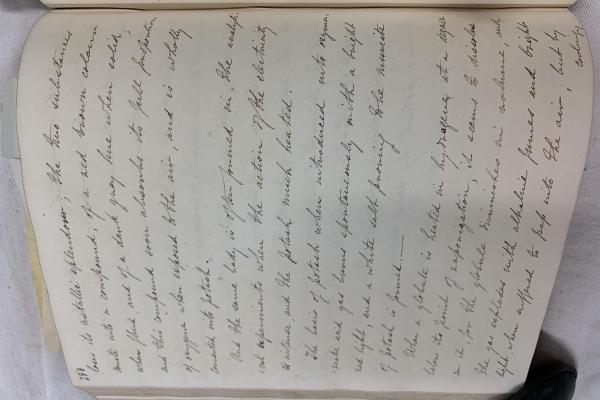 lose its metallic splendour; the two substances
unite into a compound, of a red brown colour
when fluid, and of a dark grey hue when solid,
and this compound soon absorbs its full proportion
of oxygene when exposed to the air, and is wholly
converted into potash.
And the same body is often formed in the analyti-
cal experiments when the action of the electricity
is intense, and the potash much heated.
The basis of potash when introduced into oxymu-
riatic acid gas burns spontaneously with a bright
red light, and a white salt proving to be muriate
of potash is formed.
When a globule is heated in hydrogene at a degree
below its point of vaporization, it seems to dissolve
in it, for the globule diminishes in volume, and
the gas explodes with alkaline fumes and bright
light, when suffered to pass into the air, but by
cooling,